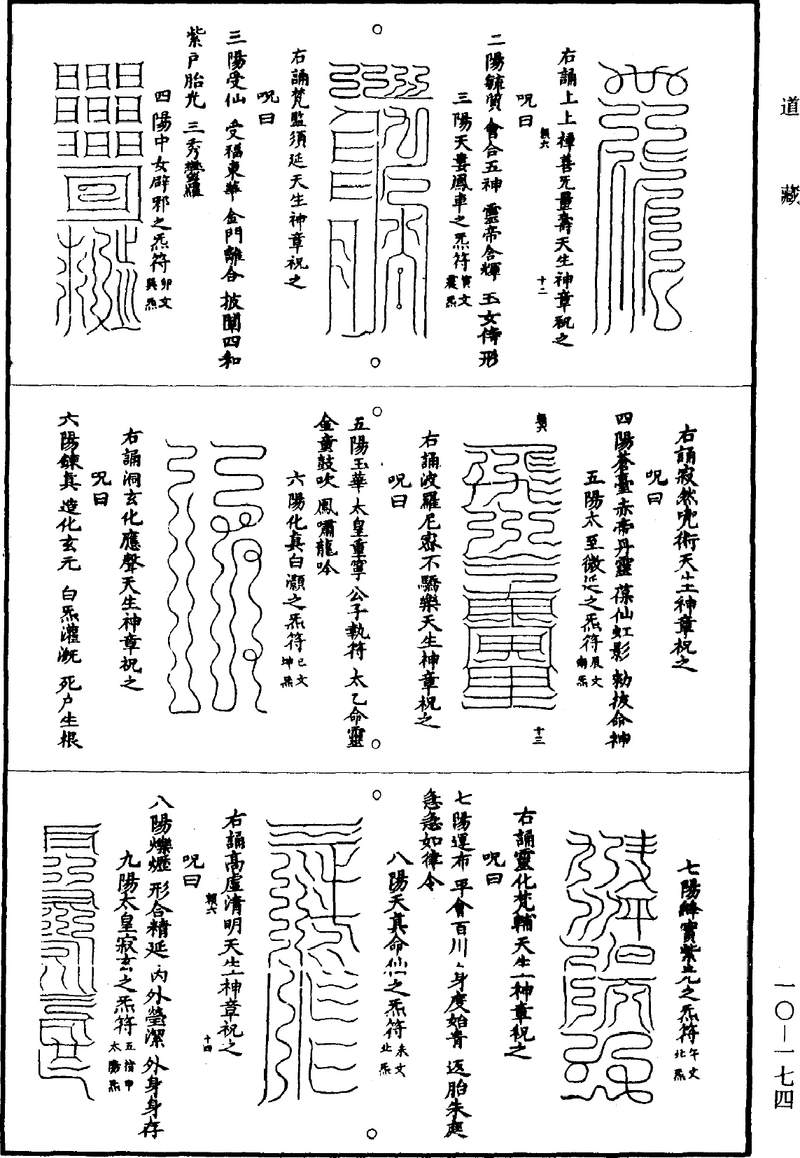 道藏
右誦上上禪善无量壽天生神章祝之
呪曰
二陽毓質 會合五神 靈帝含輝 玉女侍形
三陽天婁鳳車之炁符 寅文 震炁
右誦梵監須延天生神章祝之
呪曰
三陽受仙 受福東華 金門離合 披闓四和
紫戶胎光 三秀鬱羅
四陽中女辟邪之炁符 卯文 巽炁
右誦寂然兜術天生神章祝之
呪曰
四陽蒼臺 赤帝丹靈 葆仙虹影 勅拔命神
五陽太至微延之炁符 辰文 離炁
右誦波羅尼密不驕樂天生神章祝之
呪曰
五陽玉華 太皇重寧 公子執符 太乙命靈
金童鼓吹 鳳嘯龍吟
六陽化真白灝之炁符 巳文 坤炁
右誦洞玄化應聲天生神章祝之
呪曰
六陽鍊真 造化玄元 白炁灌溉 死戶生根
七陽絳實紫元之炁符 午文 北炁
右誦靈化梵輔天生神章祝之
呪曰
七陽運布 平會百川 身度始青 返胎朱庭
急急如律令
八陽天真命仙之炁符 未文 北炁
右誦高虛清明天生神章祝之
呪曰
八陽爍爍 形合精延 內外瑩潔 外身身存
九陽太皇寂玄之炁符 太陽炁
十二
十三
十四
一〇—一七四